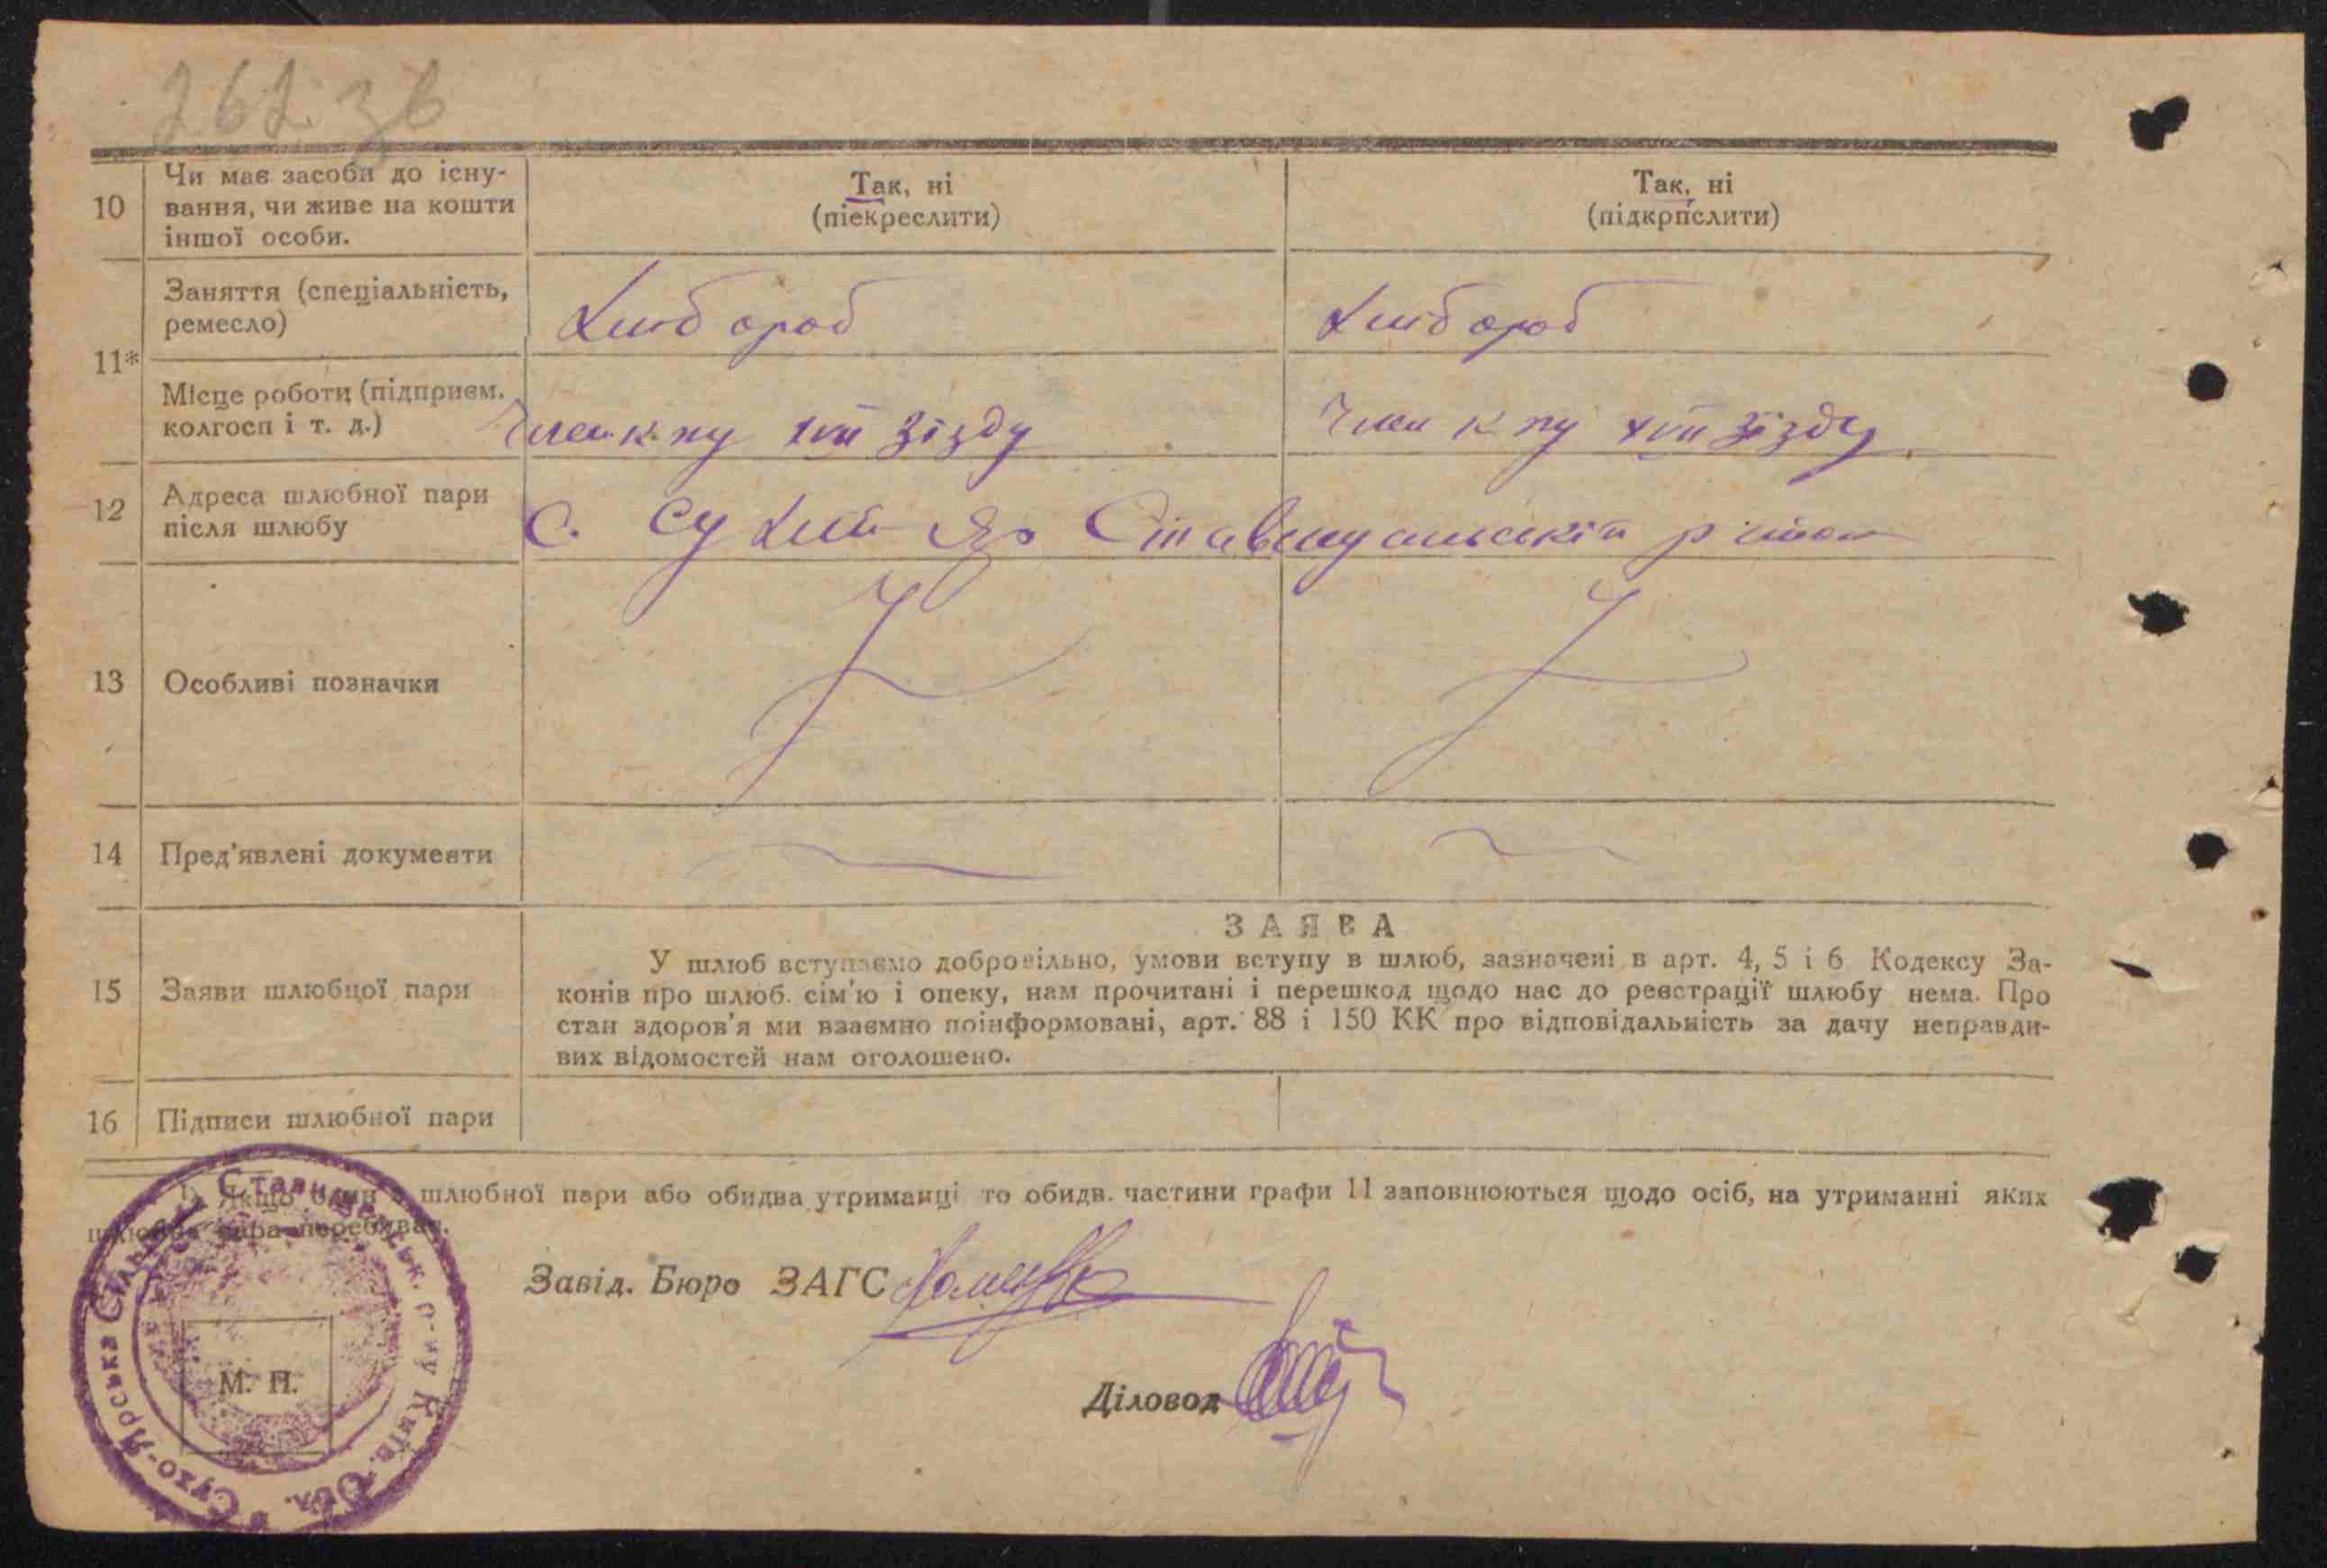 262 зв
10
Чи має засоби до існу-
вання, чи живе на кошти
іншої особи.
Так, ні
(піекреслити)
Так, ні
(підкрпслити)
11*
Заняття (спеціальність,
ремесло)
Хлібороб
Хлібороб
Місце роботи (підприєм.
колгосп і т. д.)
Член к-пу XVII зізду
Член к-пу XVII зізду
12
Адреса шлюбної пари
після шлюбу
С. Сухий Яр Ставищанський район
13
Особливі позначки
14
Пред'явлені документи
15
Заяви шлюбної пари
ЗАЯВА
У шлюб вступаємо добровільно, умови вступу в шлюб, зазначені в арт. 4, 5 і 6 Кодексу За-
конів про шлюб. сім'ю і опеку, нам прочитані і перешкод щодо нас до реєстрації шлюбу нема. Про
стан здоров'я ми взаємно поінформовані, арт. 88 і 150 КК про відповідальність за дачу неправди-
вих відомостей нам оголошено.
16
Підписи шлюбної пари
1) Якщо один з шлюбної пари або обидва утриманці то обидв. частини графи 11 заповнюються щодо осіб, на утриманні яких
шлюбна пара перебуває.
Завід. Бюро ЗАГС
Діловод
М. П.
Сухо-Ярська Сільрада Ставищеньськ. р-ну Київ. Обл.